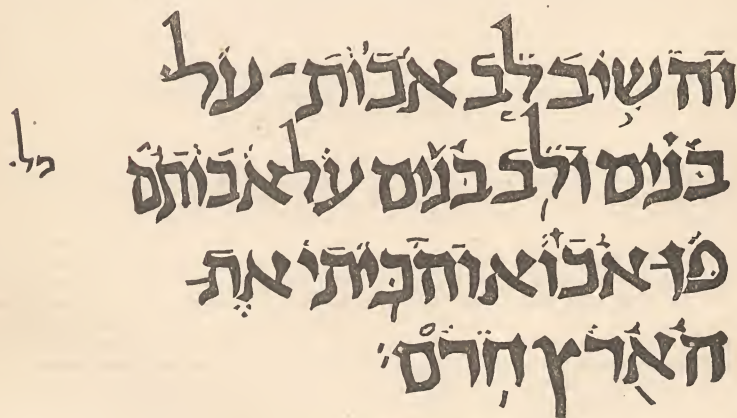 והשיב לב אבות על
בנים ולב בנים על אבותם
מל
פן אבוא והכיתי את
הארץ חרם׃